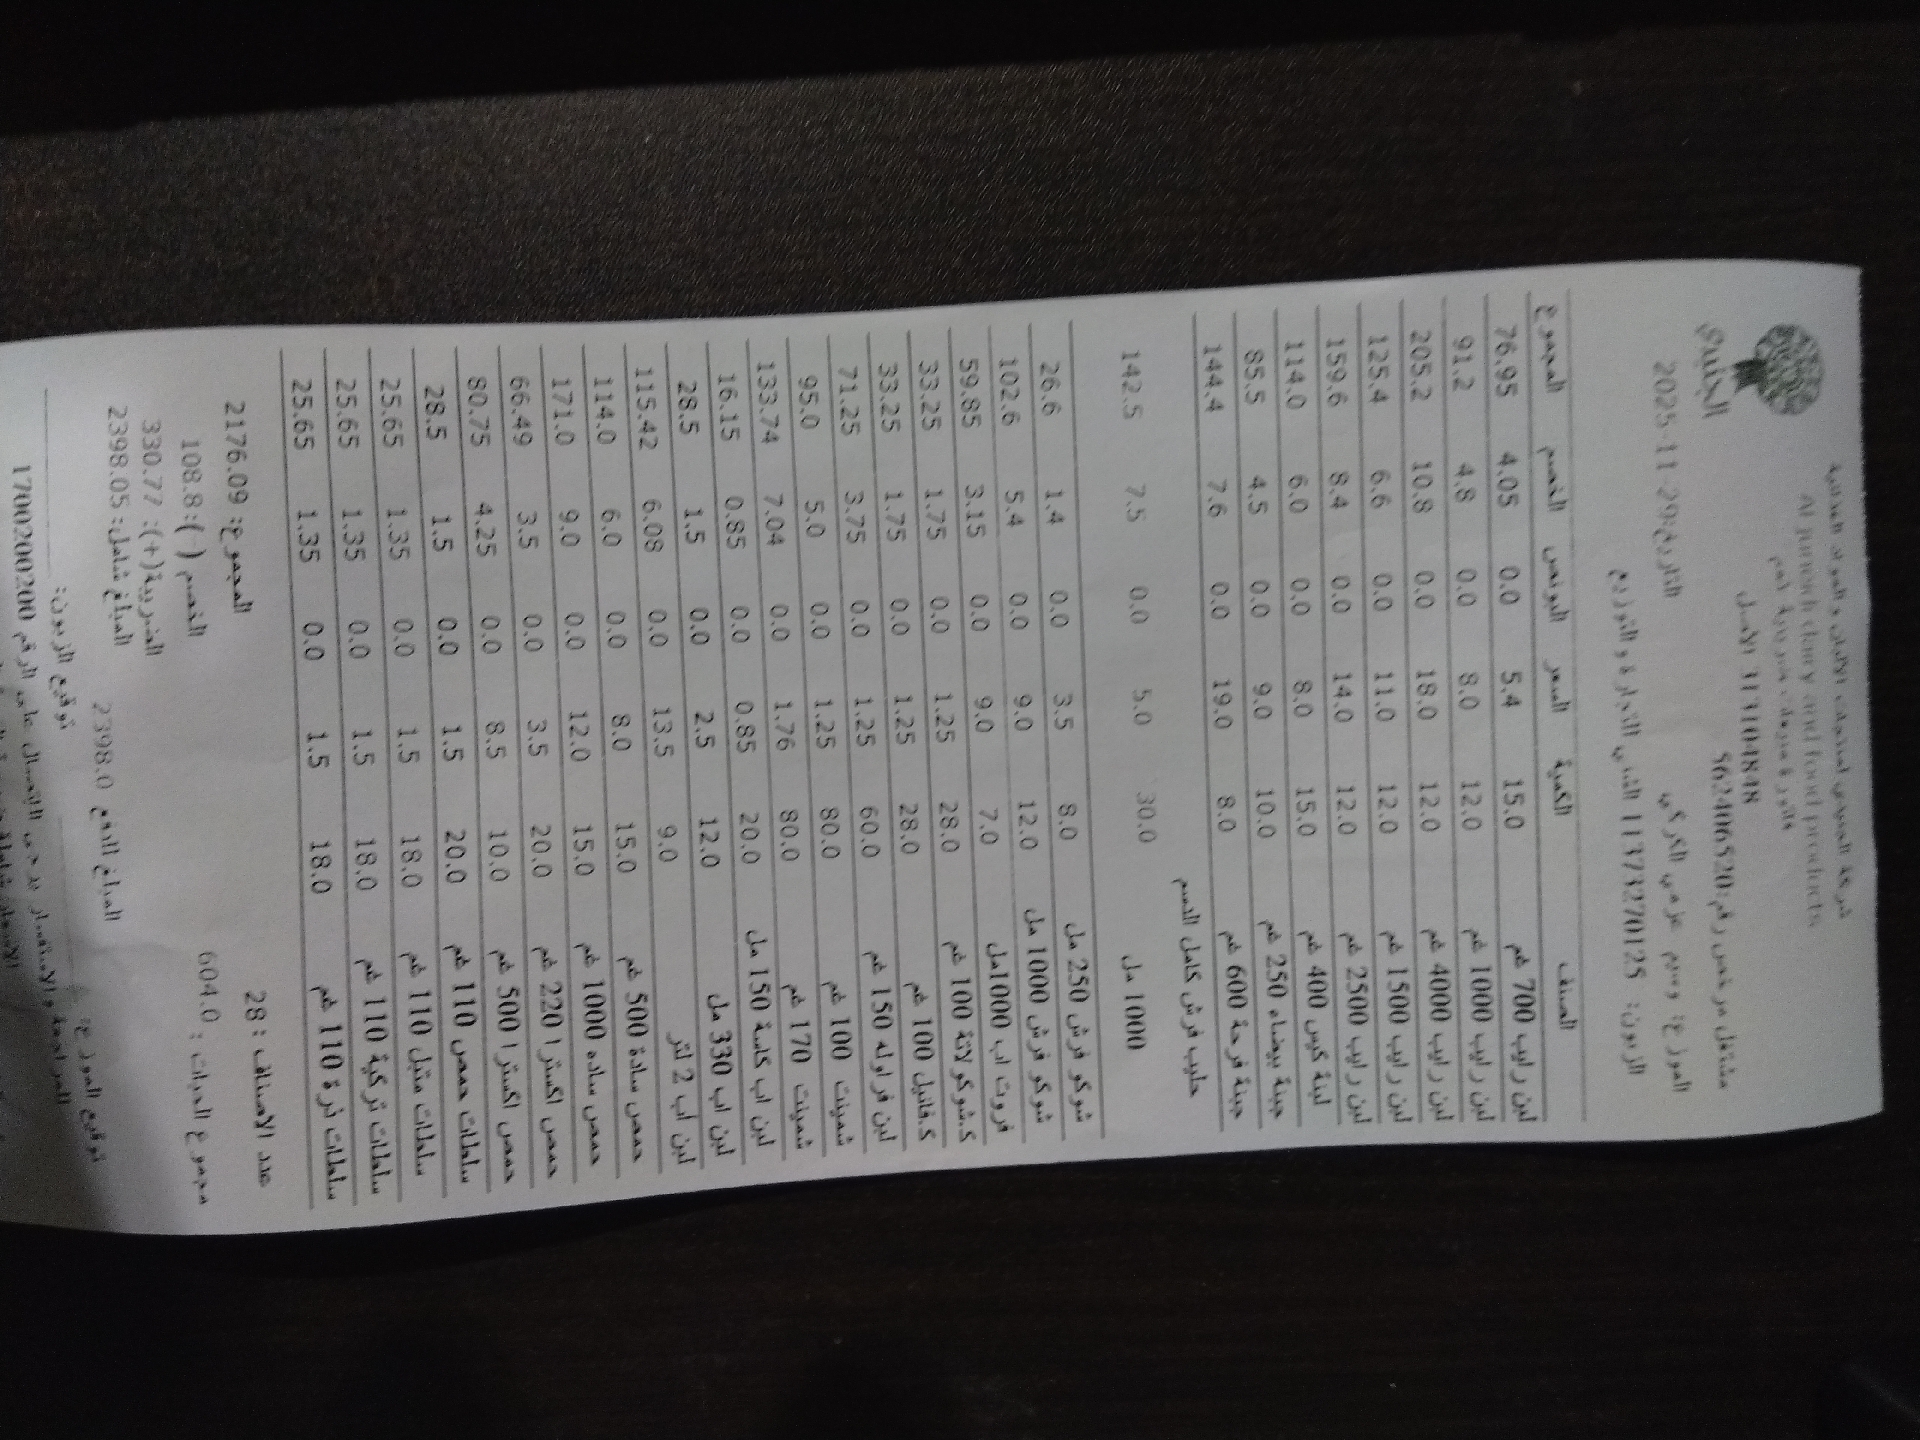 الجنيدي
شركة الجنيدي لمنتجات الألبان والمواد الغذائية
Al juneidi dairy and food products
فاتورة مبيعات ضريبية ذمم
الاصل 313104848
مشتغل مرخص رقم:562406520
التاريخ:29-11-2025
الموزع: وسيم عزمي الكركي
الزبون: 1137327012S
الصنف الكمية السعر البونص الخصم المجموع
لبن رايب 700 غم 15.0 5.4 0.0 4.05 76.95
لبن رايب 1000 غم 12.0 8.0 0.0 4.8 91.2
لبن رايب 4000 غم 12.0 18.0 0.0 10.8 205.2
لبن رايب 1500 غم 12.0 11.0 0.0 6.6 125.4
لبن رايب 2500 غم 12.0 14.0 0.0 8.4 159.6
لبنة كيس 400 غم 15.0 8.0 0.0 6.0 114.0
جبنة بيضاء 250 غم 10.0 9.0 0.0 4.5 85.5
جبنة فرحة 600 غم 8.0 19.0 0.0 7.6 144.4
حليب فرش كامل الدسم
1000 مل 30.0 5.0 0.0 7.5 142.5
شوكو فرش 250 مل 8.0 3.5 0.0 1.4 26.6
شوكو فرش 1000 مل 12.0 9.0 0.0 5.4 102.6
فروت اب 1000مل 7.0 9.0 0.0 3.15 59.85
ك.شوكولاتة 100 غم 28.0 1.25 0.0 1.75 33.25
ك.فانيل 100 غم 28.0 1.25 0.0 1.75 33.25
لبن فراوله 150 غم 60.0 1.25 0.0 3.75 71.25
شمينت 100 غم 80.0 1.25 0.0 5.0 95.0
شمينت 170 غم 80.0 1.76 0.0 7.04 133.74
لبن اب كاسة 150 مل 20.0 0.85 0.0 0.85 16.15
لبن اب 330 مل 12.0 2.5 0.0 1.5 28.5
لبن اب 2 لتر 9.0 13.5 0.0 6.08 115.42
حمص سادة 500 غم 15.0 8.0 0.0 6.0 114.0
حمص ساده 1000 غم 15.0 12.0 0.0 9.0 171.0
حمص اكسترا 220 غم 20.0 3.5 0.0 3.5 66.49
حمص اكسترا 500 غم 10.0 8.5 0.0 4.25 80.75
سلطات حمص 110 غم 20.0 1.5 0.0 1.5 28.5
سلطات متبل 110 غم 18.0 1.5 0.0 1.35 25.65
سلطات تركية 110 غم 18.0 1.5 0.0 1.35 25.65
سلطات ذرة 110 غم 18.0 1.5 0.0 1.35 25.65
عدد الاصناف : 28 المجموع: 2176.09
مجموع الحبات : 604.0 الخصم (-):108.8
الضريبة(+): 330.77
المبلغ للدفع 2398.0 المبلغ شامل: 2398.05
توقيع الموزع: توقيع الزبون:
للمراجعة والاستفسار يرجى الاتصال على الرقم 1700200200